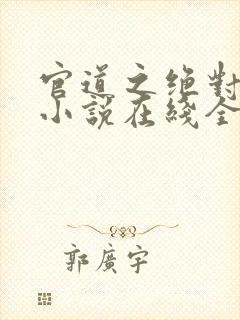 官道之绝對
小説在綫全
郭廣宇